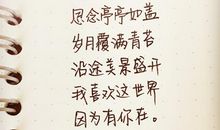 思念亭亭如盖
岁月覆满青苔
沿途美景盛开
我喜欢这世界
因为有你在。